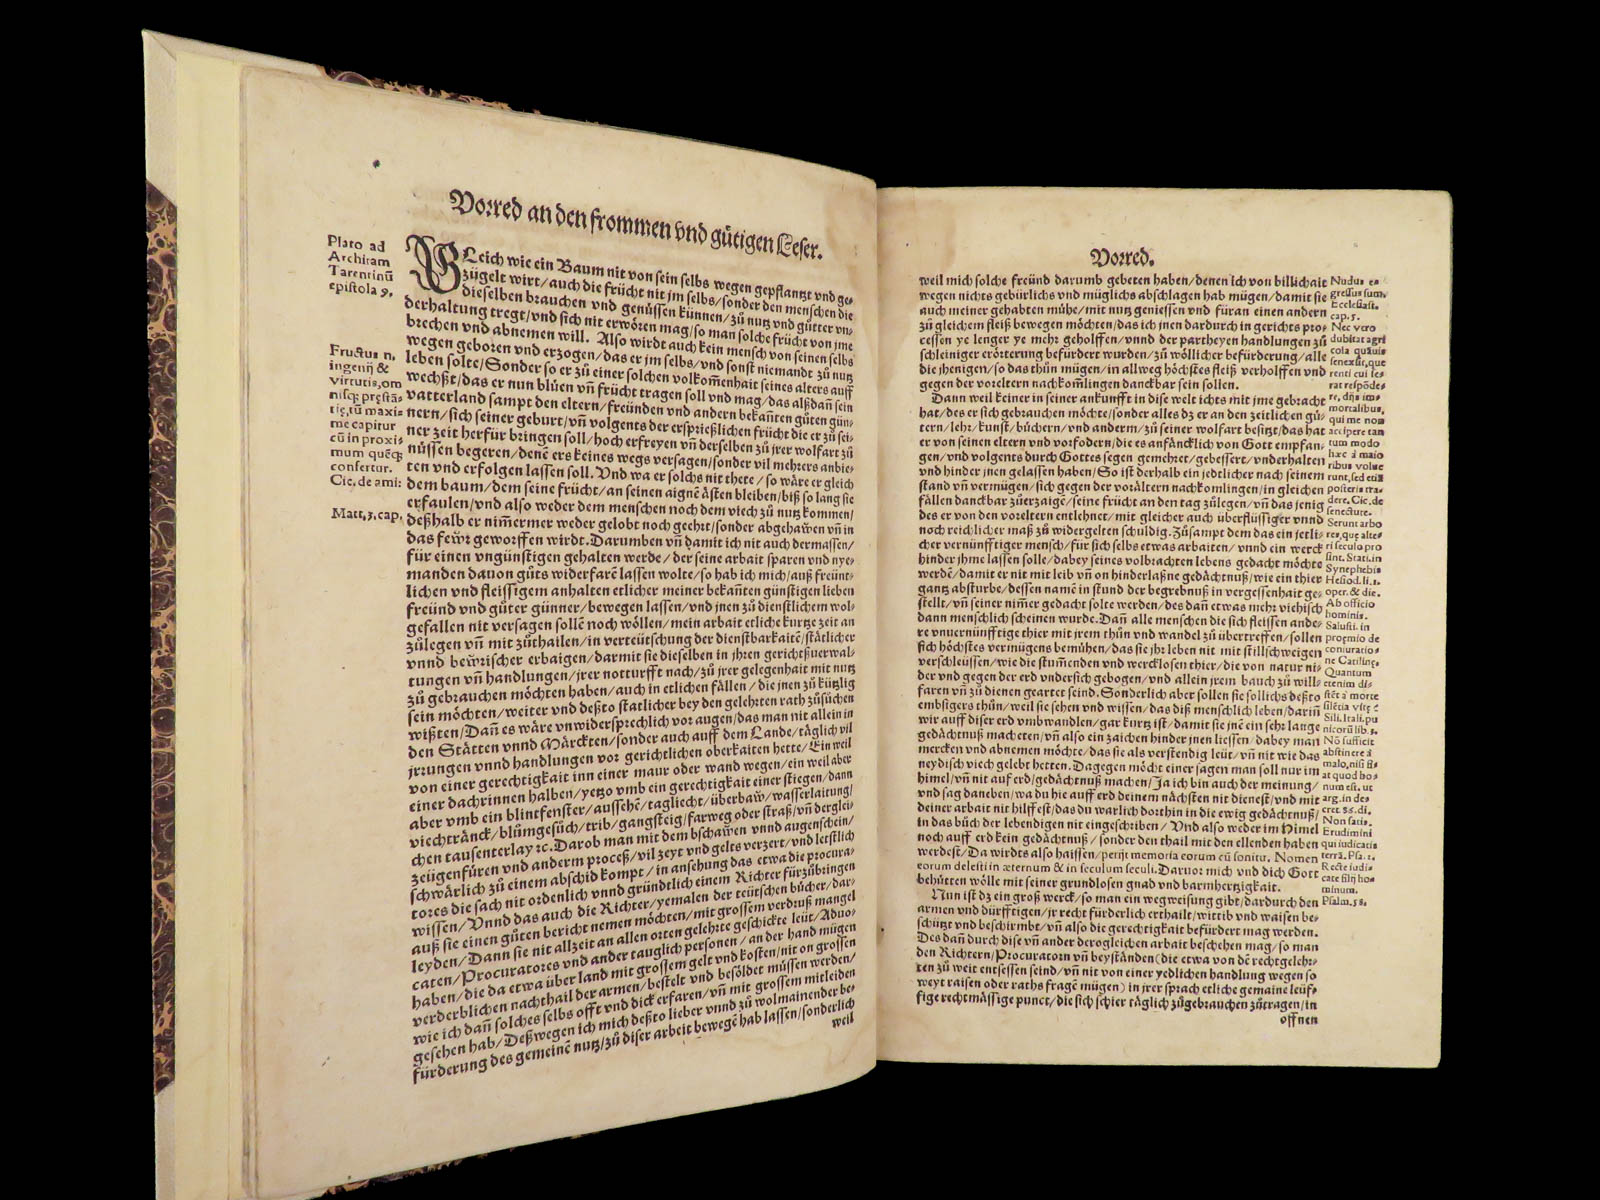 Vorred an den frommen vnd gůtigen Leser.
Plato ad
Architam
Tarentinũ
epistola 9.
GLeich wie ein Baum nit von sein selbs wegen gepflantzt vnd ge-
zügelt wirt/auch die frücht nit jm selbs/sonder den menschen die
dieselben brauchen vnd genüssen künnen/zů nutz vnd gůtter vn-
derhaltung tregt/vnd sich nit erwören mag/so man solche frücht von jme
brechen vnd abnemen will. Also wirdt auch kein mensch von seinen selbs
wegen geboren vnd erzogen/das er jm selbs/vnd sonst niemandt zů nutz
leben solte/Sonder so er zů einer solchen volkom̃enhait seines alters auff
wechßt/das er nun blüen vñ frücht tragen soll vnd mag/das alßdañ sein
vatterland sampt den eltern/freünden vnd andern bekañten gůten gün-
nern/sich seiner geburt/vñ volgents der ersprießlichen frücht die er zů sei-
ner zeit herfür bringen soll/hoch erfreyen vñ derselben zů jrer wolfart zů
nüssen begeren/denẽ ers keines wegs versagen/sonder vil mehrers anbie-
ten vnd erfolgen lassen soll. Vnd wa er solchs nit thete/so wäre er gleich
dem baum/dem seine frücht/an seinen aignẽ ästen bleiben/biß so lang sie
erfaulen/vnd also weder dem menschen noch dem viech zů nutz kommen/
deßhalb er nim̃ermer weder gelobt noch geehrt/sonder abgehawen vñ in
das fewr geworffen wirdt. Darumben vñ damit ich nit auch dermassen/
für einen vngünstigen gehalten werde/der seine arbait sparen vnd nye-
manden dauon gůts widerfarẽ lassen wolte/so hab ich mich/auß freünt-
lichen vnd fleissigem anhalten etlicher meiner bekañten günstigen lieben
freünd vnd gůter günner/bewegen lassen/vnd jnen zů dienstlichem wol-
gefallen nit versagen sollẽ noch wöllen/mein arbait etliche kurtze zeit an
zůlegen vñ mit zůthailen/in verteütschung der dienstbarkaitẽ/stätlicher
vnnd bewrischer erbaigen/darmit sie dieselben in jhren gerichtßuerwal-
tungen vñ handlungen/jrer notturfft nach/zů jrer gelegenhait mit nutz
zů gebrauchen möchten haben/auch in etlichen fällen/die jnen zů kützlig
sein möchten/weiter vnd deßto statlicher bey den gelehrten rath zůsůchen
wißten/Dañ es wäre vnwidersprechlich vor augen/das man nit allein in
den Stätten vnnd Märckten/sonder auch auff dem Lande/täglich vil
jrrungen vnnd handlungen vor gerichtlichen oberkaiten hette/Ein weil
von einer gerechtigkait inn einer maur oder wand wegen/ein weil aber
einer dachrinnen halben/yetzo vmb ein gerechtigkait einer stiegen/dann
aber vmb ein blintfenster/aussehẽ/tagliecht/überbaw/wasserlaitung/
viechtränck/blůmgesůch/trib/gangsteig/farweg oder straß/vñ derglei-
chen tausenterlay ꝛc. Darob man mit dem bschawen vnnd augenschein/
zeügenfüren vnd anderm proceß/vil zeyt vnd gelts verzert/vnd letstlich
schwärlich zů einem abschid kompt/in ansehung das etwa die procura-
tores die sach nit ordenlich vnnd gründtlich einem Richter fürzůbringen
wissen/Vnnd das auch die Richter/yemalen der teütschen bücher/dar-
auß sie einen gůten bericht nemen möchten/mit grossem verdruß mangel
leyden/Dann sie nit allzeit an allen orten gelehrte geschickte leüt/Aduo-
caten/Procuratores vnd ander tauglich personen/an der hand mügen
haben/die da etwa über land mit grossem gelt vnd kosten/nit on grossen
verderblichen nachthail der armen/bestelt vnd besöldet müssen werden/
wie ich dañ solches selbs offt vnd dick erfaren/vñ mit grossem mitleiden
gesehen hab/Deßwegen ich mich deßto lieber vnnd zů wolmainender be-
fürderung des gemeinẽ nutz/zů diser arbeit bewegẽ hab lassen/sonderlich
weil
Fructus n.
ingenij &
virtutis, om
nisq; pręstã-
tię, tũ maxi-
me capitur
cũ in proxi-
mum quẽq;
confertur.
Cic. de ami:
Matt. 3. cap.
Vorred.
weil mich solche freünd darumb gebeten haben/denen ich von billichait
wegen nichts gebürlichs vnd müglichs abschlagen hab mügen/damit sie
auch meiner gehabten mühe/mit nutz geniessen vnd füran einen andern
zů gleichem fleiß bewegen möchten/das ich jnen dardurch in gerichts pro-
cessen ye lenger ye mehr geholffen/vnnd der partheyen handlungen zů
schleiniger erörterung befürdert wurden/zů wöllicher befürderung/alle
die jhenigen/so das thůn mügen/in allweg höchstes fleiß verholffen vnd
gegen der voreltern nachkom̃lingen danckbar sein sollen.
Dann weil keiner in seiner ankunfft in dise welt ichts mit jme gebracht
hat/des er sich gebrauchen möchte/sonder alles dz er an den zeitlichen gů-
tern/lehr/kunst/büchern/vnd anderm/zů seiner wolfart besitzt/das hat
er von seinen eltern vnd vorfodern/die es anfäncklich von Gott empfan-
gen/vnd volgents durch Gottes segen gemehret/gebessert/vnderhalten
vnd hinder jnen gelassen haben/So ist derhalb ein jedtlicher nach seinem
stand vñ vermügen/sich gegen der vorältern nachkomlingen/in gleichen
fällen danckbar zůerzaigẽ/seine frücht an den tag zůlegen/vñ das jenig
des er von den voreltern entlehnet/mit gleicher auch überflüssiger vnnd
noch reichlicher maß zů widergelten schuldig. Zůsampt dem das ein jetli-
cher vernünfftiger mensch/für sich selbs etwas arbaiten/vnnd ein werck
hinder jhme lassen solle/dabey seines volbrachten lebens gedacht möchte
werdẽ/damit er nit mit leib vñ on hinderlaßne gedächtnuß/wie ein thier
gantz absturbe/dessen namẽ in stund der begrebnuß in vergessenhait ge-
stellt/vñ seiner nim̃er gedacht solte werden/des dañ etwas mehr viehisch
dann menschlich scheinen wurde. Dañ alle menschen die sich fleissen ande-
re vnuernünfftige thier mit jrem thůn vnd wandel zů übertreffen/sollen
sich höchstes vermügens bemühen/das sie jhr leben nit mit stillschweigen
verschleüssen/wie die stum̃enden vnd wercklosen thier/die von natur ni-
der vnd gegen der erd vndersich gebogen/vnd allein jrem bauch zů will-
faren vñ zů dienen geartet seind. Sonderlich aber sollen sie sollichs deßto
embsigers thůn/weil sie sehen vnd wissen/das diß menschlich leben/dariñ
wir auff diser erd vmbwandlen/gar kurtz ist/damit sie jnẽ ein sehr lange
gedächtnuß macheten/vñ also ein zaichen hinder jnen liessen/dabey man
mercken vnd abnemen möchte/das sie als verstendig leüt/vñ nit wie das
neydisch viech gelebt hetten. Dagegen möcht einer sagen man soll nur im
himel/vñ nit auf erd/gedächtnuß machen/Ja ich bin auch der meinung/
vnd sag daneben/wa du hie auff erd deinem nächsten nit dienest/vnd mit
deiner arbait nit hilffest/das du warlich dorthin in die ewig gedächtnuß/
in das bůch der lebendigen nit eingeschriben/Vnd also weder im Himel
noch auff erd kein gedächtnuß/sonder den thail mit den ellenden haben
werdest/Da wirdts also haissen/perijt memoria eorum cũ sonitu. Nomen
eorum delesti in æternum & in seculum seculi. Daruor mich vnd dich Gott
behütten wölle mit seiner grundlosen gnad vnd barmhertzigkait.
Nun ist dz ein groß werck/so man ein wegweisung gibt/dardurch den
armen vnd dürfftigen/jr recht fürderlich erthailt/wittib vnd waisen be-
schützt vnd beschirmbt/vñ also die gerechtigkait befürdert mag werden.
Des dañ durch dise vñ ander derogleichen arbait beschehen mag/so man
den Richtern/Procuratorn vñ beyständen (die etwa von dẽ rechtgelehr-
ten zů weit entsessen seind/vñ nit von einer yedlichen handlung wegen so
weyt raisen oder raths fragẽ mügen) in jrer sprach etliche gemaine leüf-
fige rechtmässige punct/die sich schier täglich zůgebrauchen zůtragen/in
offnen
Nudus e-
gressus sum.
Ecclesiast.
cap. 5.
Nec vero
dubitat agri
cola quãuis
senex sit, quę
renti cui se-
rat respõde-
re, dijs im-
mortalibus,
qui me non
accipere tan
tum modo
hæc à maio
ribus volue
runt, sed etiã
posteris tra-
dere. Cic. de
senectute.
Serunt arbo
res, quę alte-
ri seculo pro
sint. Stati. in
Synephebis
Hesiod. li. 1.
oper. & die.
Ab officio
hominis.
Salust. in
proęmio de
coniuratio-
ne Catilinę.
Quantum
etenim di-
stẽt à morte
silẽtia vitę?
Sili. Itali. pu
nicorũ lib. 3.
Nõ sufficit
abstinere à
malo, nisi fi-
at quod bo-
num est. ut
arg. in de-
cret. 86. di.
Non satis.
Erudimini
qui iudicatis
terrã. Psa. 2.
Recte iudi-
cate filij ho-
minum.
Psalm. 58.